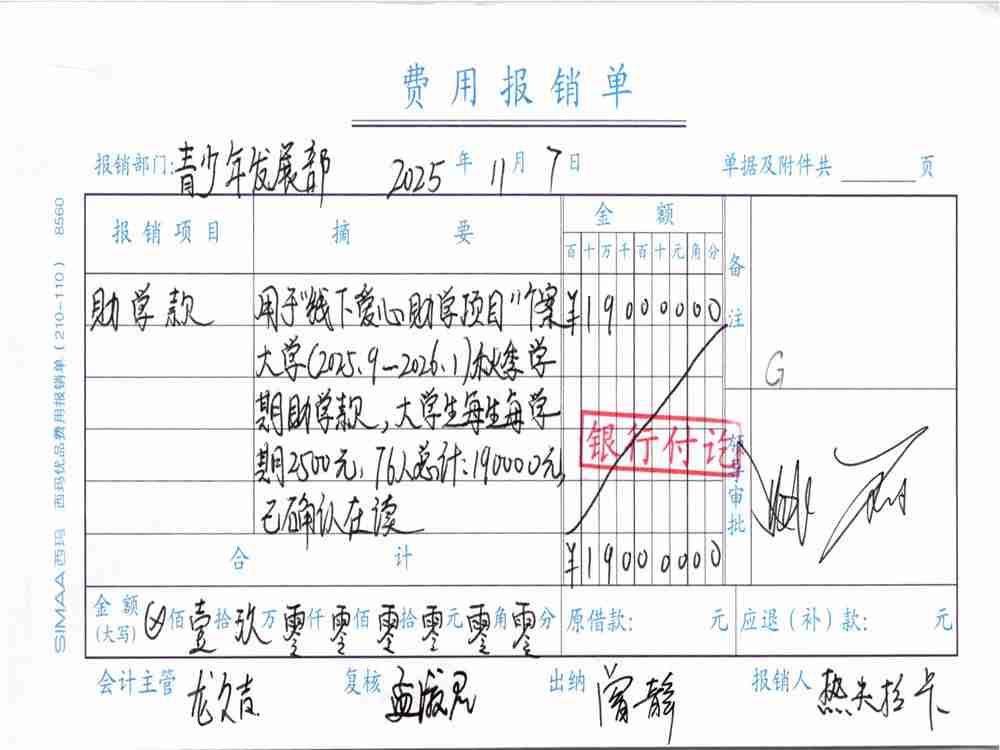 费用报销单
报销部门:青少年发展部 2025年11月7日 单据及附件共 页
SIMAA西玛 西玛优品费用报销单(210-110) 8560
报销项目 摘要 金额 备注
百十万千百十元角分
助学款 用于"线下爱心助学项目"个案 ¥19000000
大学(2025.9—2026.1)秋季学
期助学款,大学生每生每学
期2500元,76人总计:190000元,
已确认在读
G
银行付讫
领导审批
合计 ¥19000000
金额(大写) 佰壹拾玖万零仟零佰零拾零元零角零分 原借款: 元 应退(补)款: 元
会计主管 龙久吉 复核 孟淑君 出纳 曾静 报销人 热夹拉卡